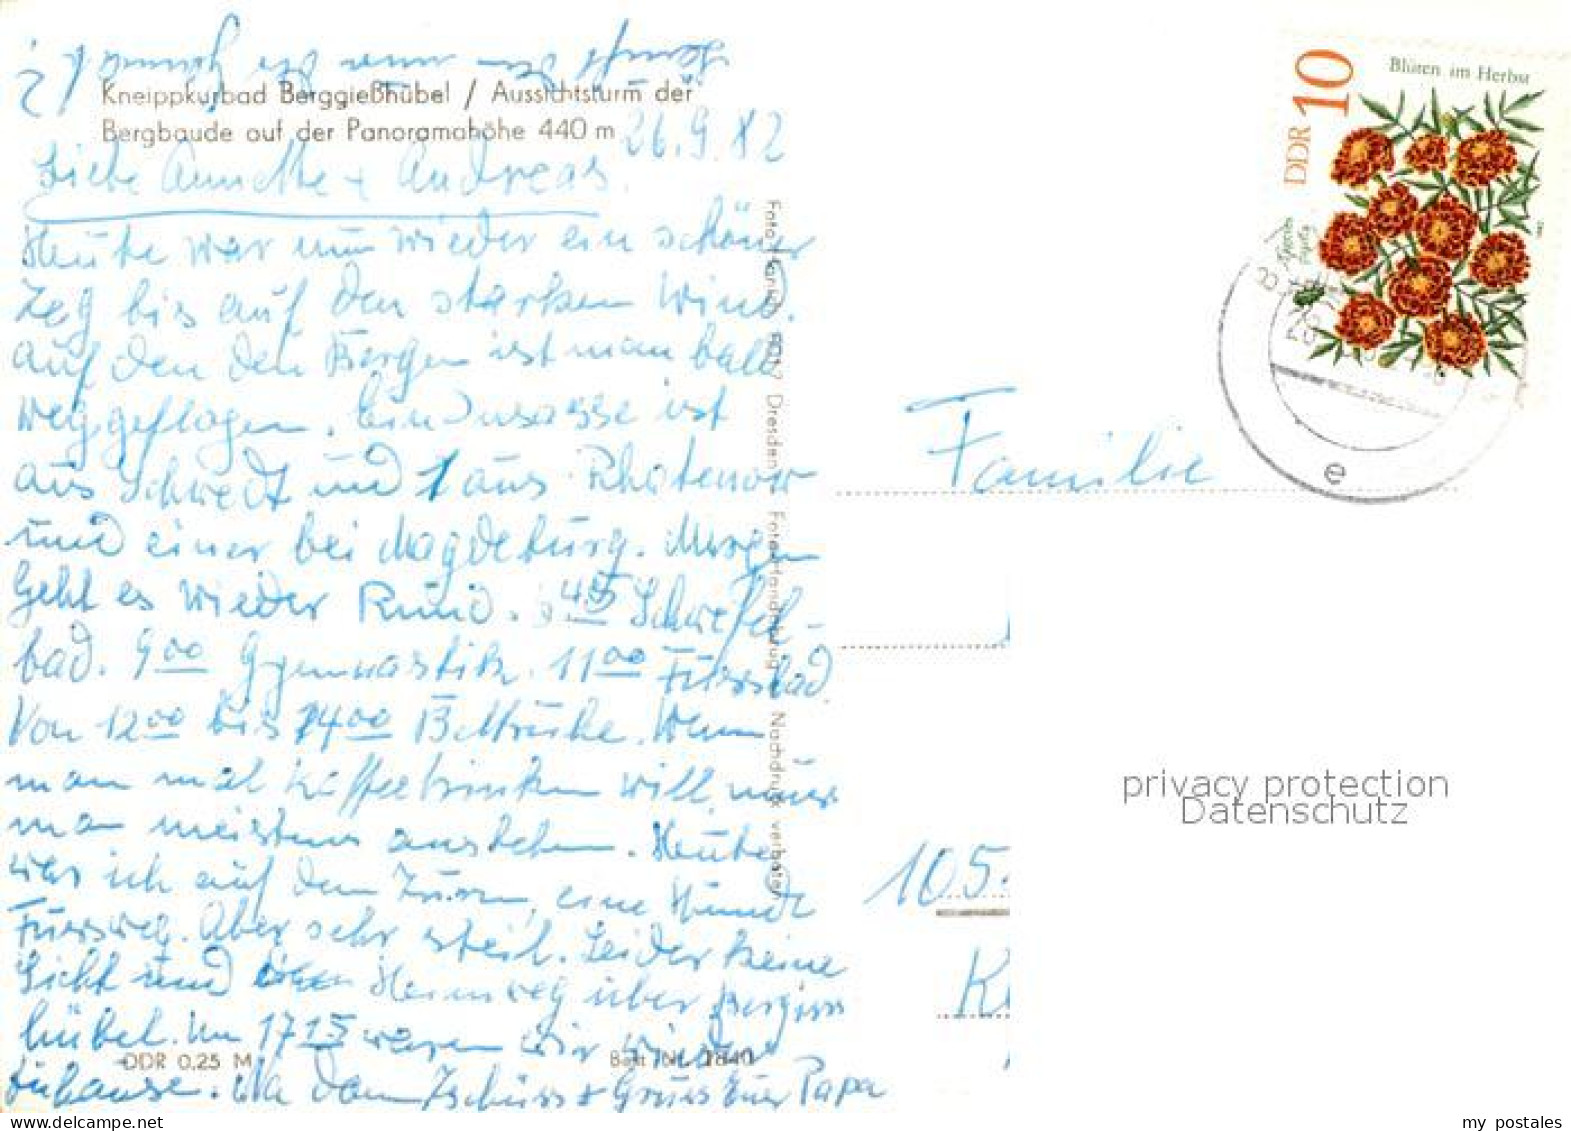 Kneippkurbad Berggießhübel / Aussichtsturm der
Bergbaude auf der Panoramahöhe 440 m
26.9.82
Liebe Annethe + Andreas.
Heute war nun wieder ein schöner
Tag bis auf den starken Wind.
Auf den den Bergen ist man bald
weggeflogen. Ein Insasse ist
aus Schwedt und 1 aus Rhatenow
und einer bei Magdeburg. Morgen
Geht es wieder Rund. 45 Schwefel-
bad. 9 00 Gymnastik. 11 00 Fussbad.
Von 12 00 bis 14 00 Bettruhe. Wenn
man mal Kaffeetrinken will, muss
man meistens anstehen. Heute
war ich auf dem Turm, eine Stunde
Fussweg. Aber sehr steil. Leider keine
Sicht und Heimweg über Berggiess
hübel. Um 17 15 waren wir wieder
zuhause. Na dann Tschüss + Gruss Euer Papa
DDR 0,25 M
Best. Nr.
Dresden
Nachdruck verboten
Blüten im Herbst
DDR 10
e
Familie
105
K
privacy protection
Datenschutz
my postales